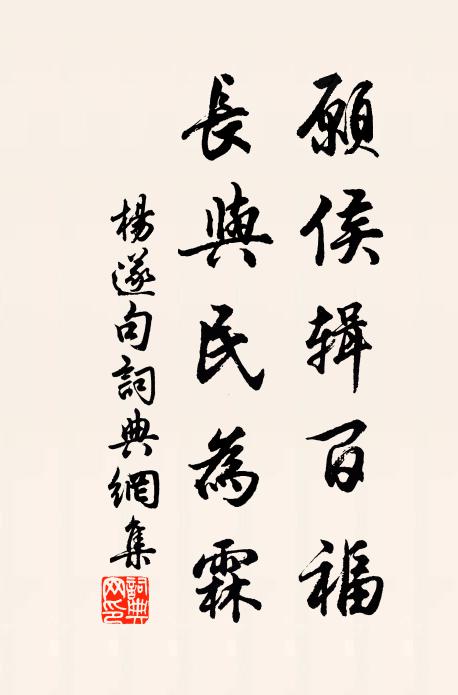 願侯輯百福
長與民為霖
楊遂句詞典網集
詞典網印